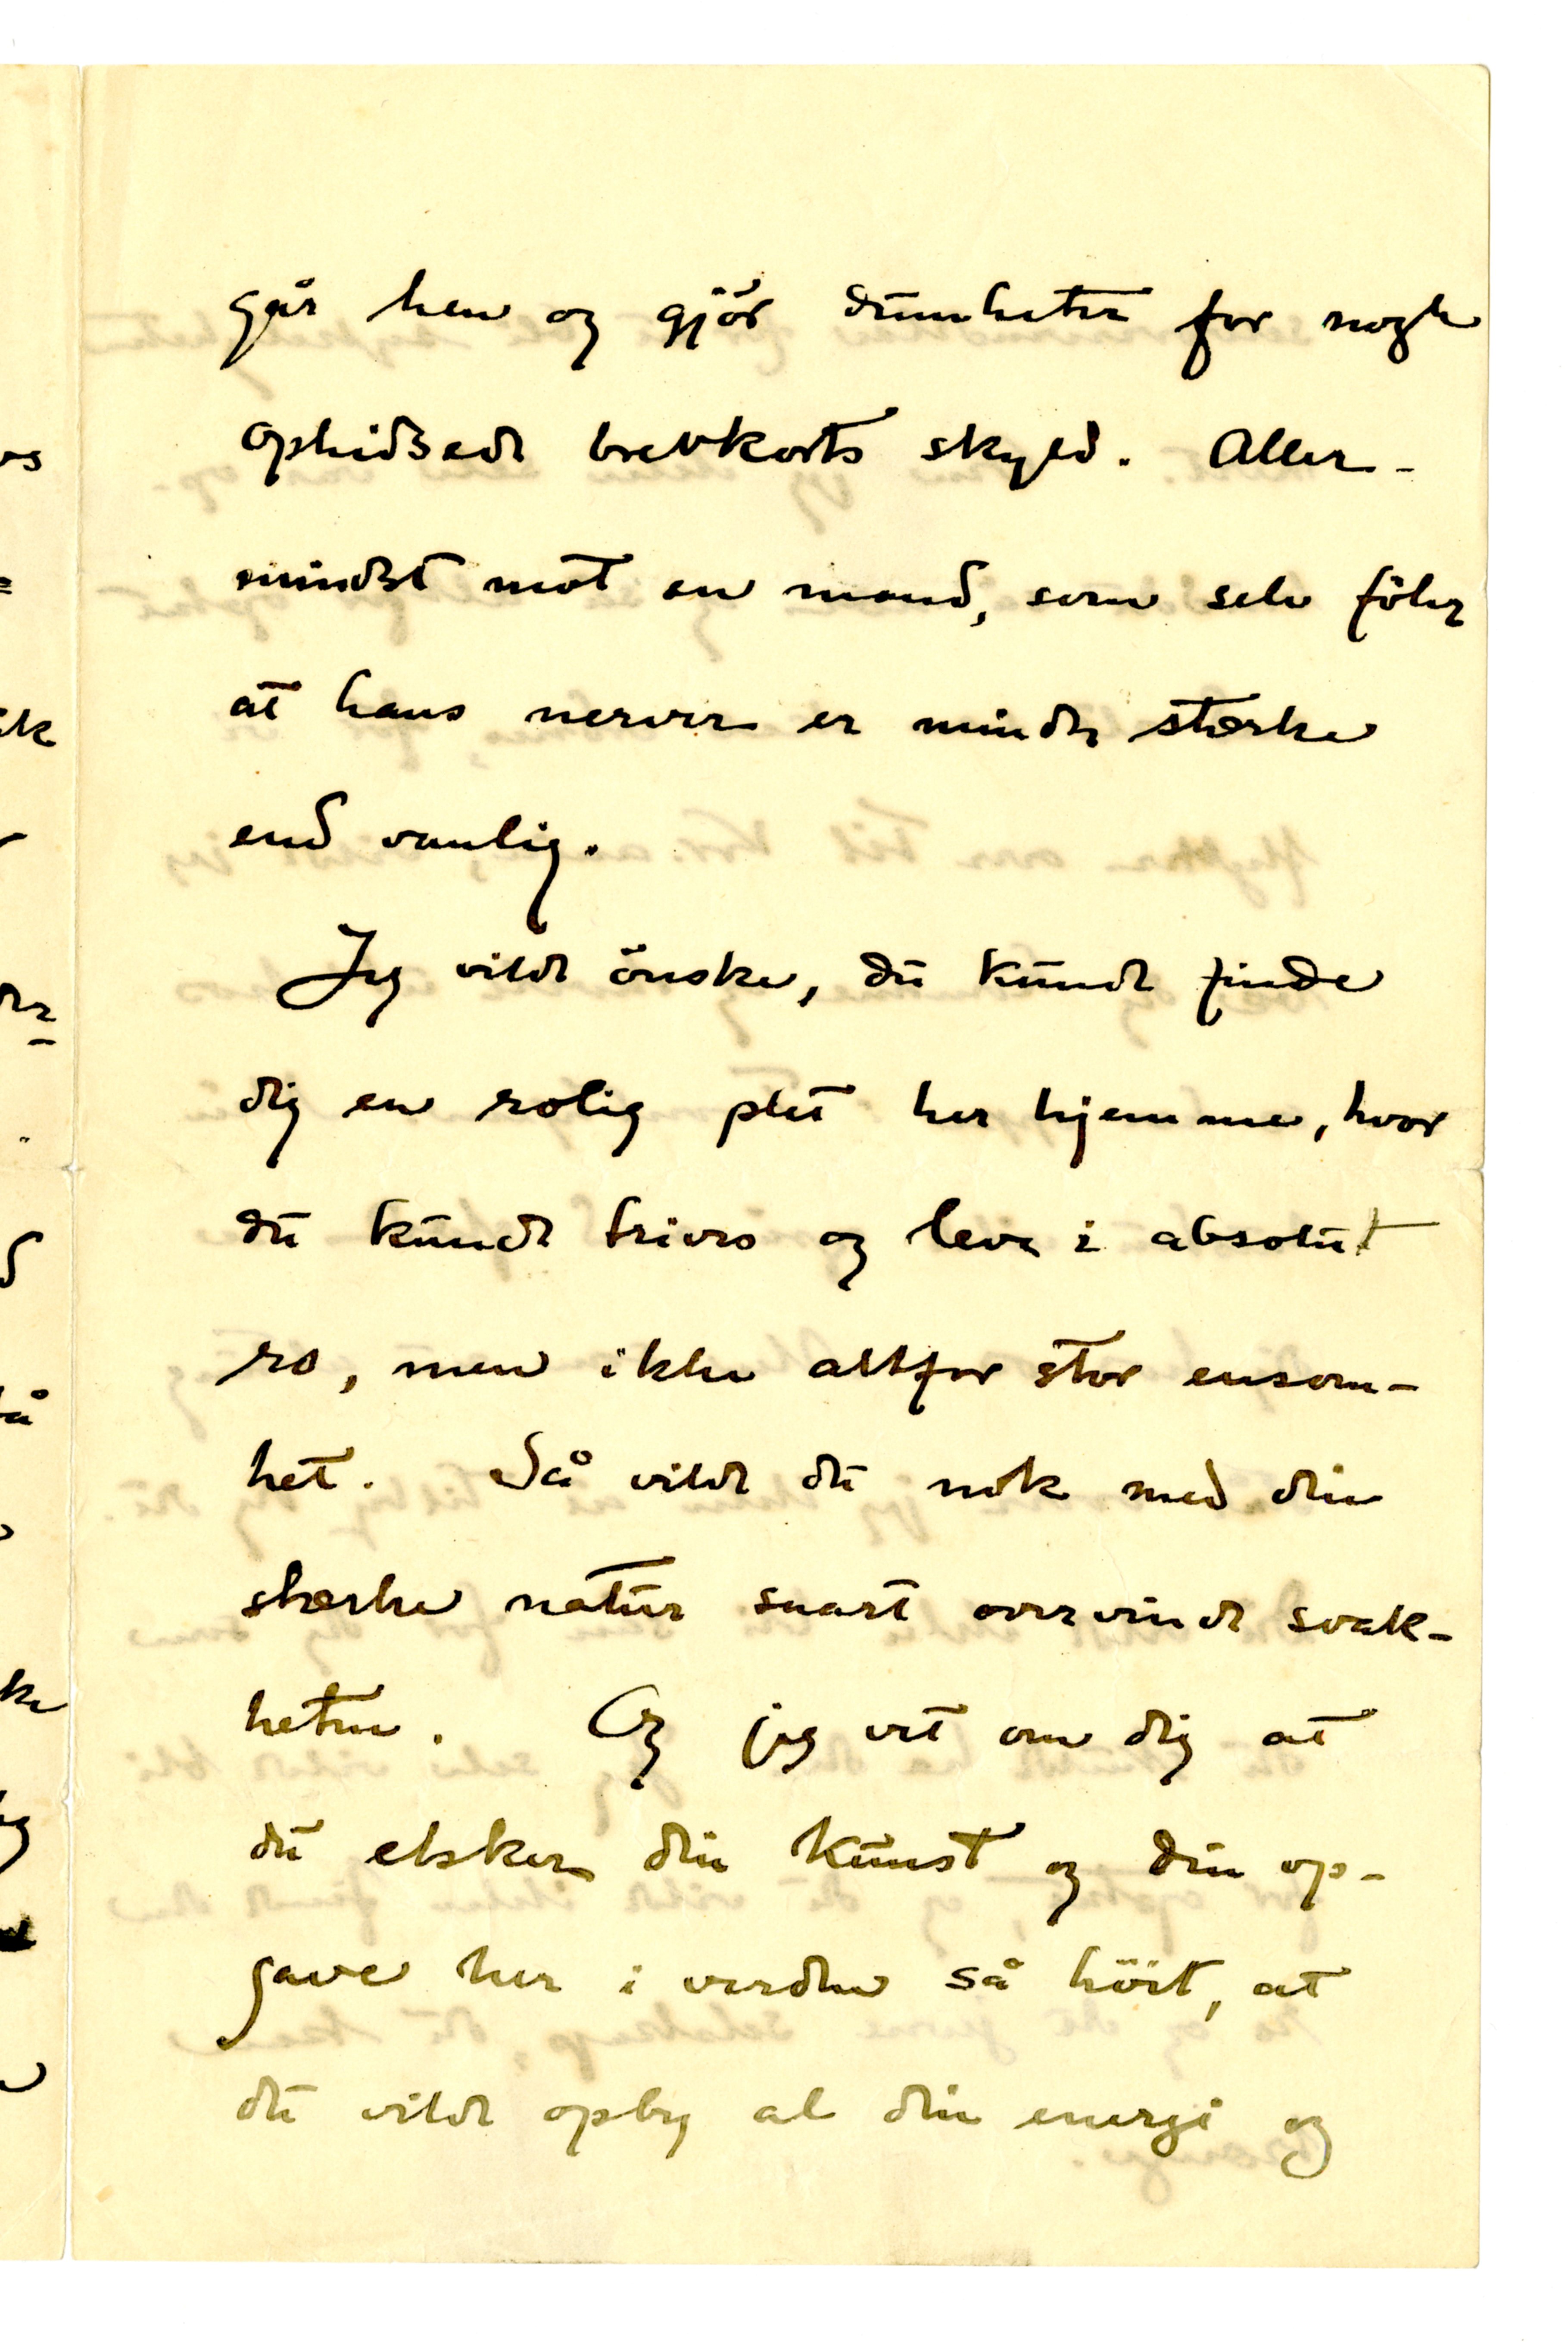 går hen og gjör dumheter for nogle
ophidsede brevkorts skyld. Aller-
mindst mot en mand, som selv föler
at hans nerver er mindre stærke
end vanlig.
Jeg vilde önske, du kunde finde
dig en rolig plet her hjemme, hvor
du kunde trives og leve i absolut
ro, men ikke altfor stor ensom-
het. Så vilde du nok med din
stærke natur snart overvinde svak-
heten. Og jeg vet om dig at
du elsker din kunst og din op-
gave her i verden så höit, at
du vilde opby al din energi og